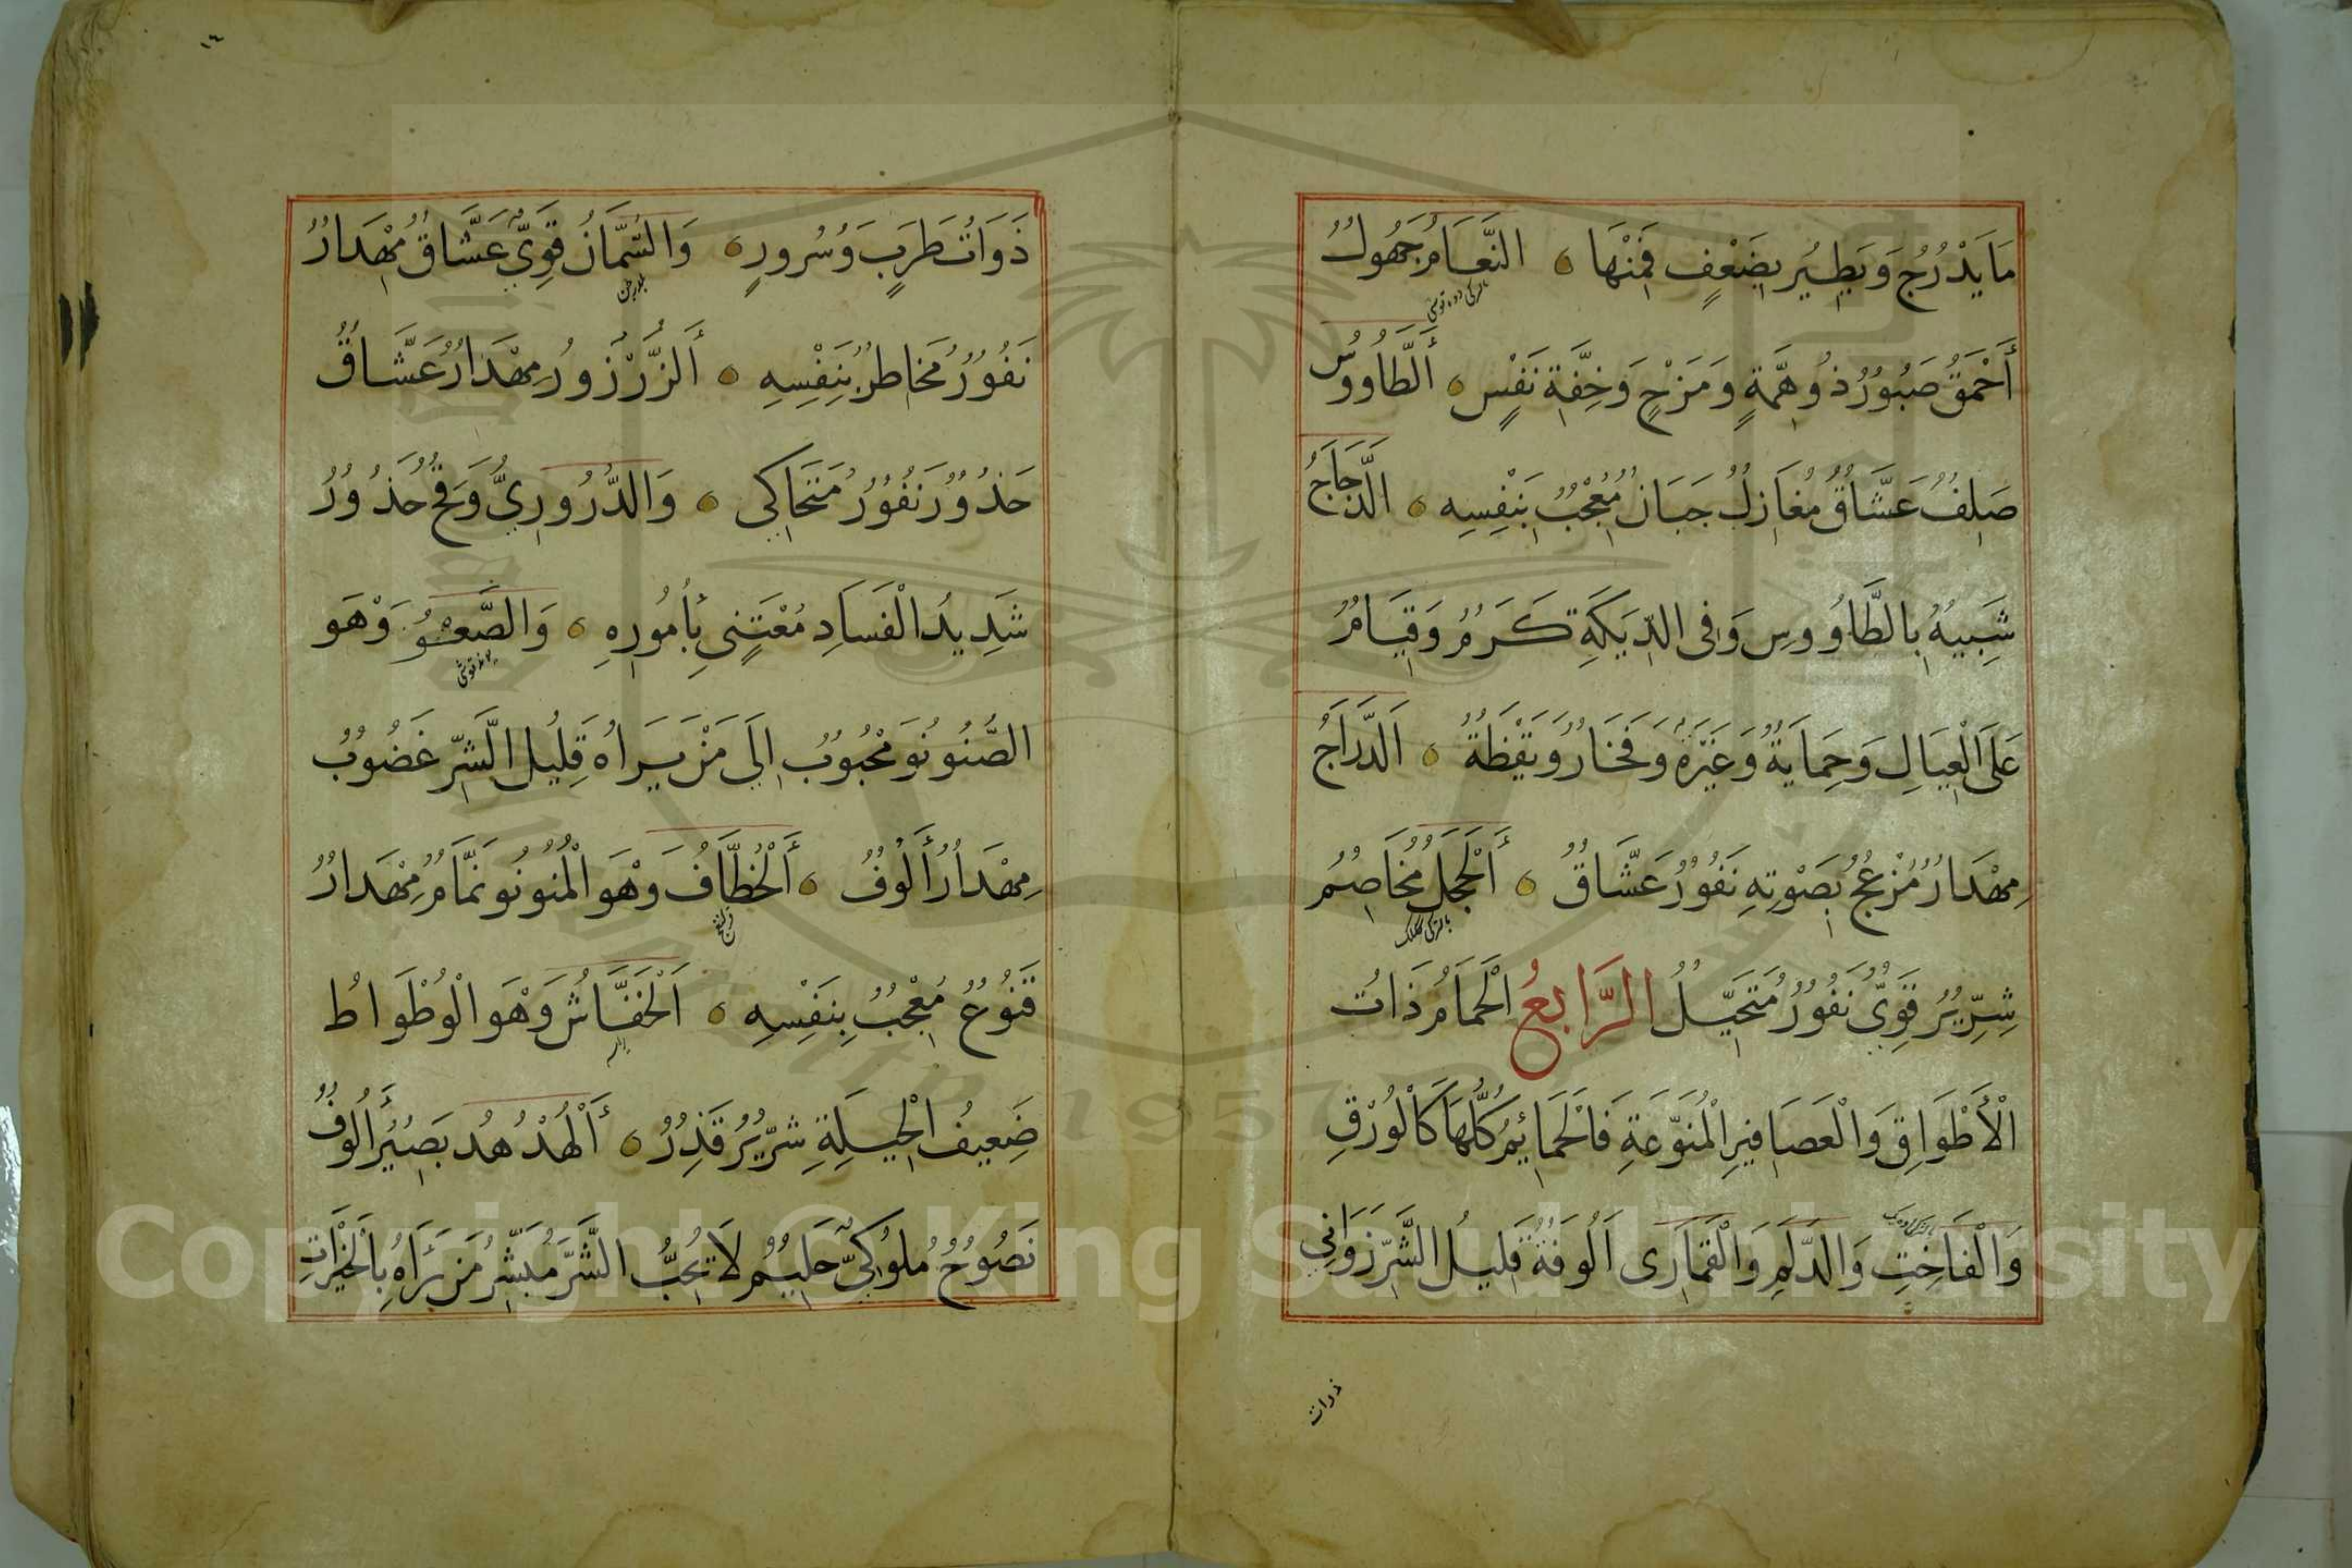 مَا يَدْرُجُ وَيَطِيُر بِضَعْفٍ فَمِنْهَا ٥ النَّعَامُ جَهُولٌ
بالتركى دوه قوشى
أَحْمَقُ صَبُورٌ ذُو هِمَّةٍ وَمَزْحٍ وَخِفَّةِ نَفْسٍ ٥ أَلطَّاوُوسُ
صَلِفٌ عَشَّاقٌ مُغَازِلٌ جَبَانٌ مُعْجِبٌ بِنَفْسِهِ ٥ الدَّجَاجُ
شَبِيهُهُ بِالطَّاوُوسِ وَفِى الدِّيَكَةِ كَرَمٌ وَقِيَامٌ
عَلَى الْعِيَالِ وَحِمَايَةٌ وَغَيْرَةٌ وَفَخَارٌ وَيَقْظَةٌ ٥ اَلدَّرَاجُ
مِهْدَارٌ مُزْعِجٌ بِصَوْتِهِ نَفُورٌ عَشَّاقٌ ٥ أَلْحَجَلُ مُخَاصِمٌ
بالتركى ككلك
شِرِّيرٌ قَوِيٌّ نَفُورٌ مُتَحَيِّلٌ الرَّابِعُ الْحَمَامُ ذَاتُ
الْأَطْوَاقِ وَالْعَصَافِيرِ الْمُنَوَّعَةِ فَالْحَمَائِمُ كُلُّهَا كَالْوُرْقِ
وَالْفَاخِتِ وَالدَّلَمِ وَالْقَمَارَى اَلُوفَةٌ قَلِيلُ الشَّرِّ زَوَانِي
ذوات
١٤
ذَوَاتُ طَرَبٍ وَسُرُورٍ ٥ وَالسُّمَّانُ قَوِيٌّ عَشَّاقٌ مِهْدَارٌ
بلدرجن
نَفُورٌ مُخَاطِرٌ بِنَفْسِهِ ٥ أَلزَّرْزُورُ مِهْدَارٌ عَشَّاقٌ
حَذُورٌ نَفُورٌ مُتَحَاكِى ٥ وَالدُّرُورِيُّ وَقِحٌ حُذُورٌ
شَدِيدُ الْفَسَادِ مُعْتَنِى بِأُمُورِهِ ٥ وَالصَّعْوُ وَهْوَ
الصُّنُونُو مَحْبُوبٌ اِلَي مَنْ يَرَاهُ قَلِيلُ الشَّرِّ غَضُوبٌ
مِهْدَارٌ أَلُوفٌ ٥ أَلْخُطَّافُ وَهْوَ الْمُنُونُو نَمَّامٌ مِهْدَارٌ
قَنُوعٌ مُعْجِبٌ بِنَفْسِهِ ٥ اَلْخَفَّاشُ وَهْوَ الْوُطْوَاطُ
ضَعِيفُ الْحِيلَةِ شِرِّيرٌ قَذِرٌ ٥ أَلْهُدْهُد بَصِيرٌ أَلُوفٌ
نَصُوحٌ مُلُوكِيٌّ حَلِيمٌ لَا يُحِبُّ الشَّرَّ مُبَشِّرٌ مَنْ يَرَاهُ بِالْخَيْرَاتِ
Copyright © King Saud University
1957